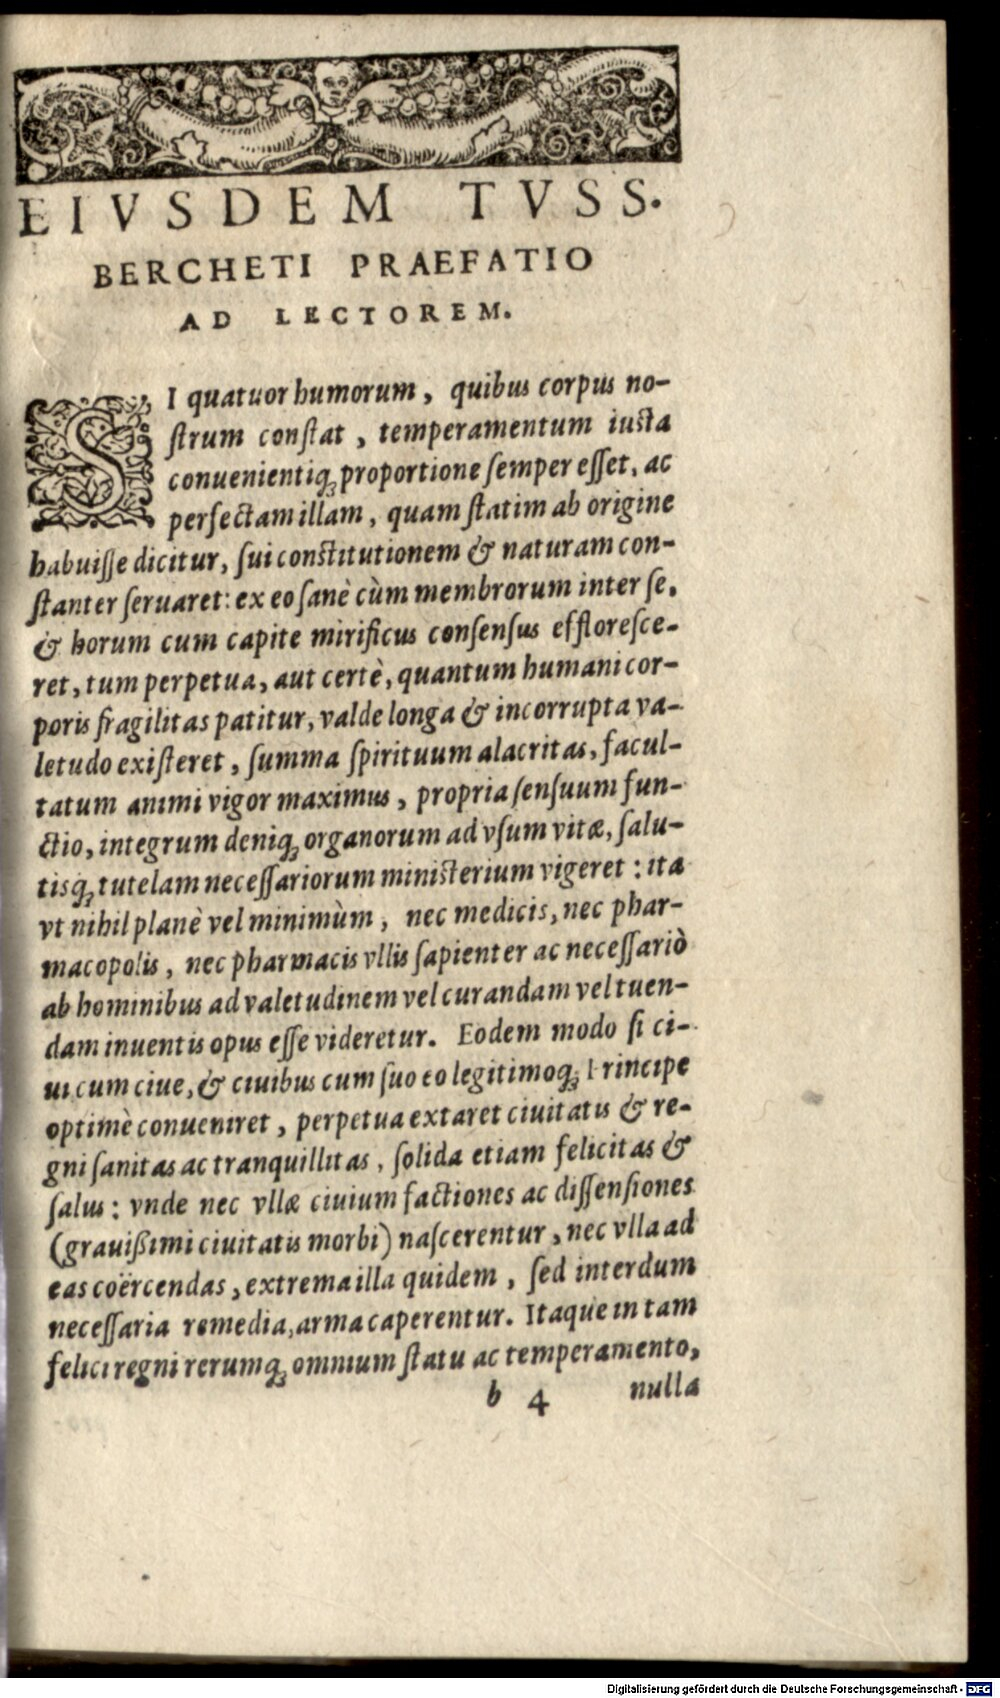 EIVSDEM TVSS.
BERCHETI PRAEFATIO
AD LECTOREM.
SI quatuor humorum, quibus corpus no-
ſtrum conſtat, temperamentum iuſta
conuenientiq́ꝫ proportione ſemper eſſet, ac
perfectam illam, quam ſtatim ab origine
habuiſſe dicitur, ſui conſtitutionem & naturam con-
ſtanter ſeruaret: ex eo ſanè cùm membrorum inter ſe,
& horum cum capite mirificus conſenſus effloreſce-
ret, tum perpetua, aut certè, quantum humani cor-
poris fragilitas patitur, valde longa & incorrupta va-
letudo exiſteret, ſumma ſpirituum alacritas, facul-
tatum animi vigor maximus, propria ſenſuum fun-
ctio, integrum deniq́ꝫ organorum ad vſum vitæ, ſalu-
tisq́ꝫ tutelam neceſſariorum miniſterium vigeret: ita
vt nihil planè vel minimùm, nec medicis, nec phar-
macopolis, nec pharmacis vllis ſapienter ac neceſſariò
ab hominibus ad valetudinem vel curandam vel tuen-
dam inuentis opus eſſe videretur. Eodem modo ſi ci-
ui cum ciue, & ciuibus cum ſuo eo legitimoq́ꝫ Principe
optimè conueniret, perpetua extaret ciuitatis & re-
gni ſanitas ac tranquillitas, ſolida etiam felicitas &
ſalus: vnde nec vllæ ciuium factiones ac diſſenſiones
(grauißimi ciuitatis morbi) naſcerentur, nec vlla ad
eas coërcendas, extrema illa quidem, ſed interdum
neceſſaria remedia, arma caperentur. Itaque in tam
felici regni rerumq́ꝫ omnium ſtatu ac temperamento,
b 4 nulla
Digitalisierung gefördert durch die Deutsche Forschungsgemeinschaft - DFG